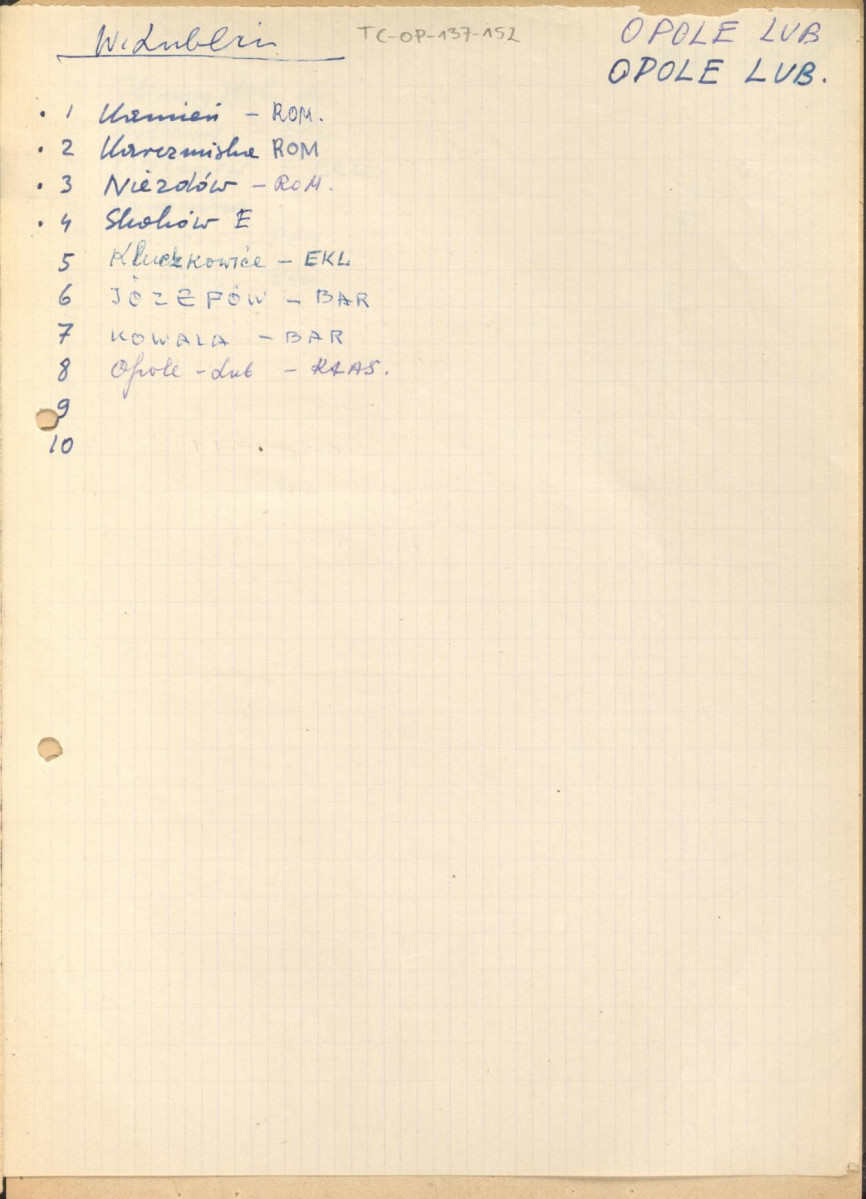 W. Lublin
TC-OP-137-152
OPOLE LUB
OPOLE LUB.
· 1 Kamień - ROM.
· 2 Karczmiska ROM
· 3 Niezdów - ROM.
· 4 Skoków E
5 Kluczkowice - EKL
6 JÓZEFÓW - BAR
7 KOWALA - BAR
8 Opole - Lub - KLAS.
9
10